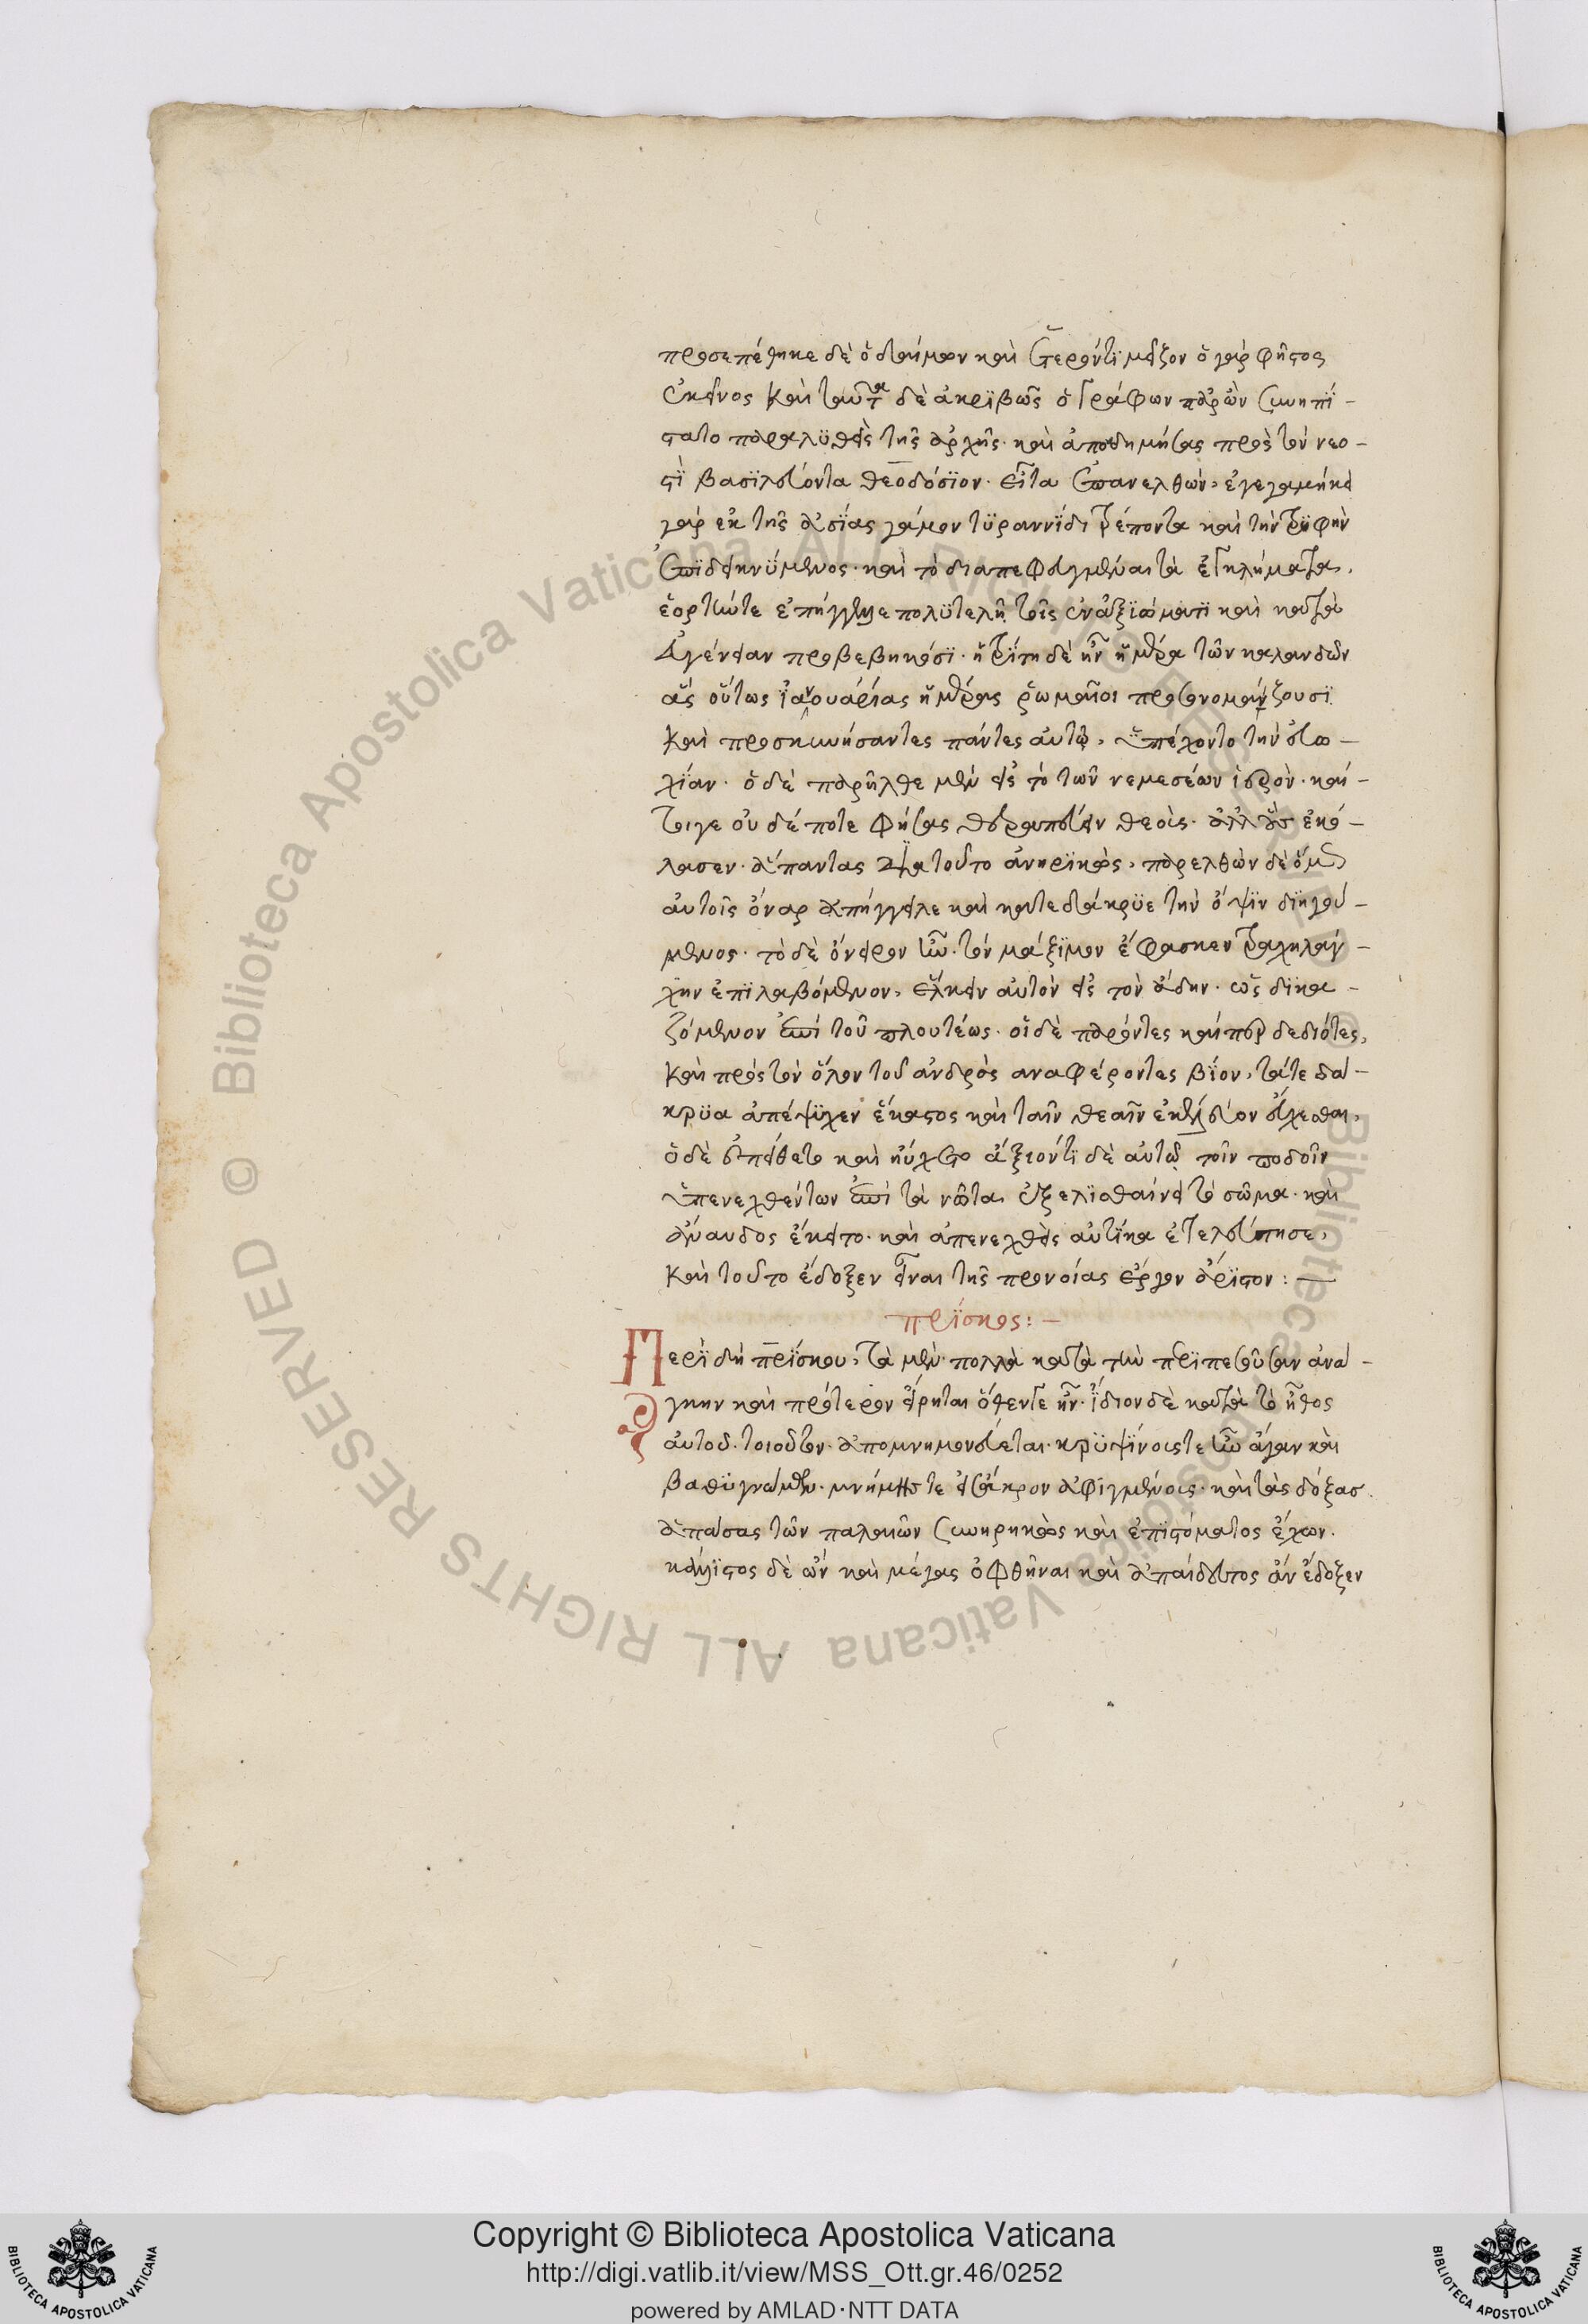 προσεπέθηκε δὲ ὁ δαίμων καὶ ἕτερόν τι μεῖζον ὁ γὰρ φῆστος
ἐκεῖνος καὶ ταῦτα δὲ ἀκριβῶς ὁ γράφων παρὼν συνηπί-
στατο παραλυθεὶς τῆς ἀρχῆς· καὶ ἀποδημήσας πρὸς τὸν νεο-
στὶ βασιλεύοντα θεοδόσιον· εἶτα ἐπανελθών, ἐγεγαμήκει
γὰρ ἐκ τῆς ἀσίας γάμον τυραννίδι πρέποντα καὶ τὴν τρυφὴν
ἐπιδεικνύμενος· καὶ τὸ διαπεφευγέναι τὰ ἐγκλήματα,
ἑορτήν τε ἐπήγγειλε πολυτελῆ τοῖς ἐν ἀξιώματι καὶ κατὰ
εὐγένειαν προβεβηκόσι· ἡ τρίτη δὲ ἦν ἡμέρα τῶν καλανδῶν
ἃς οὕτως ἰανουαρίας ἡμέρας ῥωμαῖοι προσονομάζουσι
καὶ προσκυνήσαντες πάντες αὐτῷ, ὑπέχοντο τὴν εὐω-
χίαν· ὁ δὲ παρῆλθε μὲν εἰς τὸ τῶν νεμεσέων ἱερόν· καί-
τοιγε οὐδέποτε φήσας θεραπεύειν θεοὺς· ἀλλ' οὓς ἐκό-
λασεν· ἅπαντας διὰ τοῦτο ἀνῃρηκώς, παρελθὼν δὲ ὅμως
αὐτοῖς ὄναρ ἀπήγγειλε καὶ κατεδάκρυε τὴν ὄψιν διηγού-
μενος· τὸ δὲ ὄνειρον ἦν· τὸν μάξιμον ἔφασκεν τραχηλάγ-
χην ἐπιλαβόμενον, ἕλκειν αὐτὸν εἰς τὸν ᾅδην· ὡς δικα-
ζόμενον ἐπὶ τοῦ πλουτέως· οἱ δὲ παρόντες καίπερ δεδιότες,
καὶ πρὸς τὸν ὅλον τοῦ ἀνδρὸς ἀναφέροντες βίον, τά τε δά-
κρυα ἀπέψυχεν ἕκαστος καὶ ταῖν θεαῖν ἐκέλευον εὔχεσθαι,
ὁ δὲ ἐπείθετο καὶ ηὔχετο ἀξιόντι δὲ αὐτῷ τοῖν ποδοῖν
ὑπενεχθέντων ἐπὶ τὰ νῶτα ἐξελισθαίνει τὸ σῶμα· καὶ
ἄναυδος ἔκειτο· καὶ ἀπενεχθεὶς αὐτίκα ἐτελεύτησε,
καὶ τοῦτο ἔδοξεν εἶναι τῆς προνοίας ἔργον ἄριστον:—
πρίσκος:—
Περὶ δὴ πρίσκου, τὰ μὲν πολλὰ κατὰ τὴν περιπεσοῦσαν ἀνά-
γκην καὶ πρότερον εἴρηται ὅθεν τε ἦν· ἴδιον δὲ κατὰ τὸ ἦθος
αὐτοῦ τοιοῦτον· ἀπομνημονεύεται· κρυψίνους τε ἦν ἄγαν καὶ
βαθυγνώμων· μνήμης τε εἰς ἄκρον ἀφιγμένος· καὶ τὰς δόξας
ἁπάσας τῶν παλαιῶν συνῃρηκὼς καὶ ἐπὶ στόματος ἔχων·
κάλλιστος δὲ ὢν καὶ μέγας ὀφθῆναι καὶ ἀπαίδευτος ἂν ἔδοξεν
© Biblioteca Apostolica Vaticana ALL RIGHTS RESERVED © Biblioteca Apostolica Vaticana ALL RIGHTS RESERVED
Copyright © Biblioteca Apostolica Vaticana
http://digi.vatlib.it/view/MSS_Ott.gr.46/0252
powered by AMLAD·NTT DATA
BIBLIOTECA APOSTOLICA VATICANA
BIBLIOTECA APOSTOLICA VATICANA